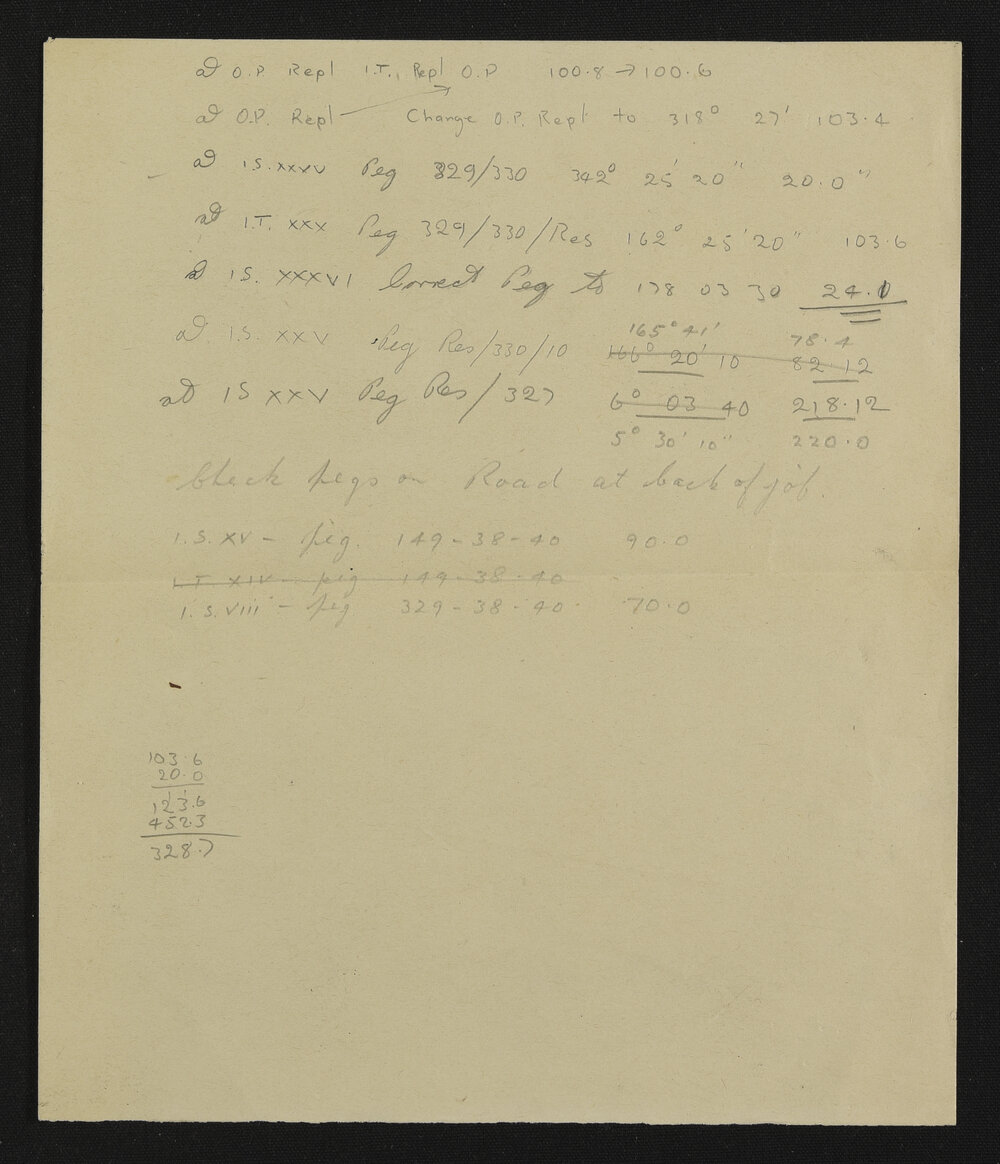 at O.P. Repl I.T., Repl O.P 100.8 → 100.6
at O.P. Repl Change O.P. Repl to 318° 27' 103.4
at I.S. XXXV Peg 329/330 342° 25' 20" 20.0"
at I.T. XXX Peg 329/330/Res 162° 25' 20" 103.6
at I.S. XXXVI Correct Peg to 178 03 30 24.0
165° 41' 78.4
at I.S. XXV Peg Res/330/10 166° 20' 10 82.12
at IS XXV Peg Res/327 6° 03 40 218.12
5° 30' 10" 220.0
Check pegs on Road at back of job.
I.S. XV – peg. 149-38-40 90.0
I.T. XIV – peg 149-38-40
I.S. VIII – peg 329-38-40 70.0
103.6
20.0
123.6
452.3
328.7